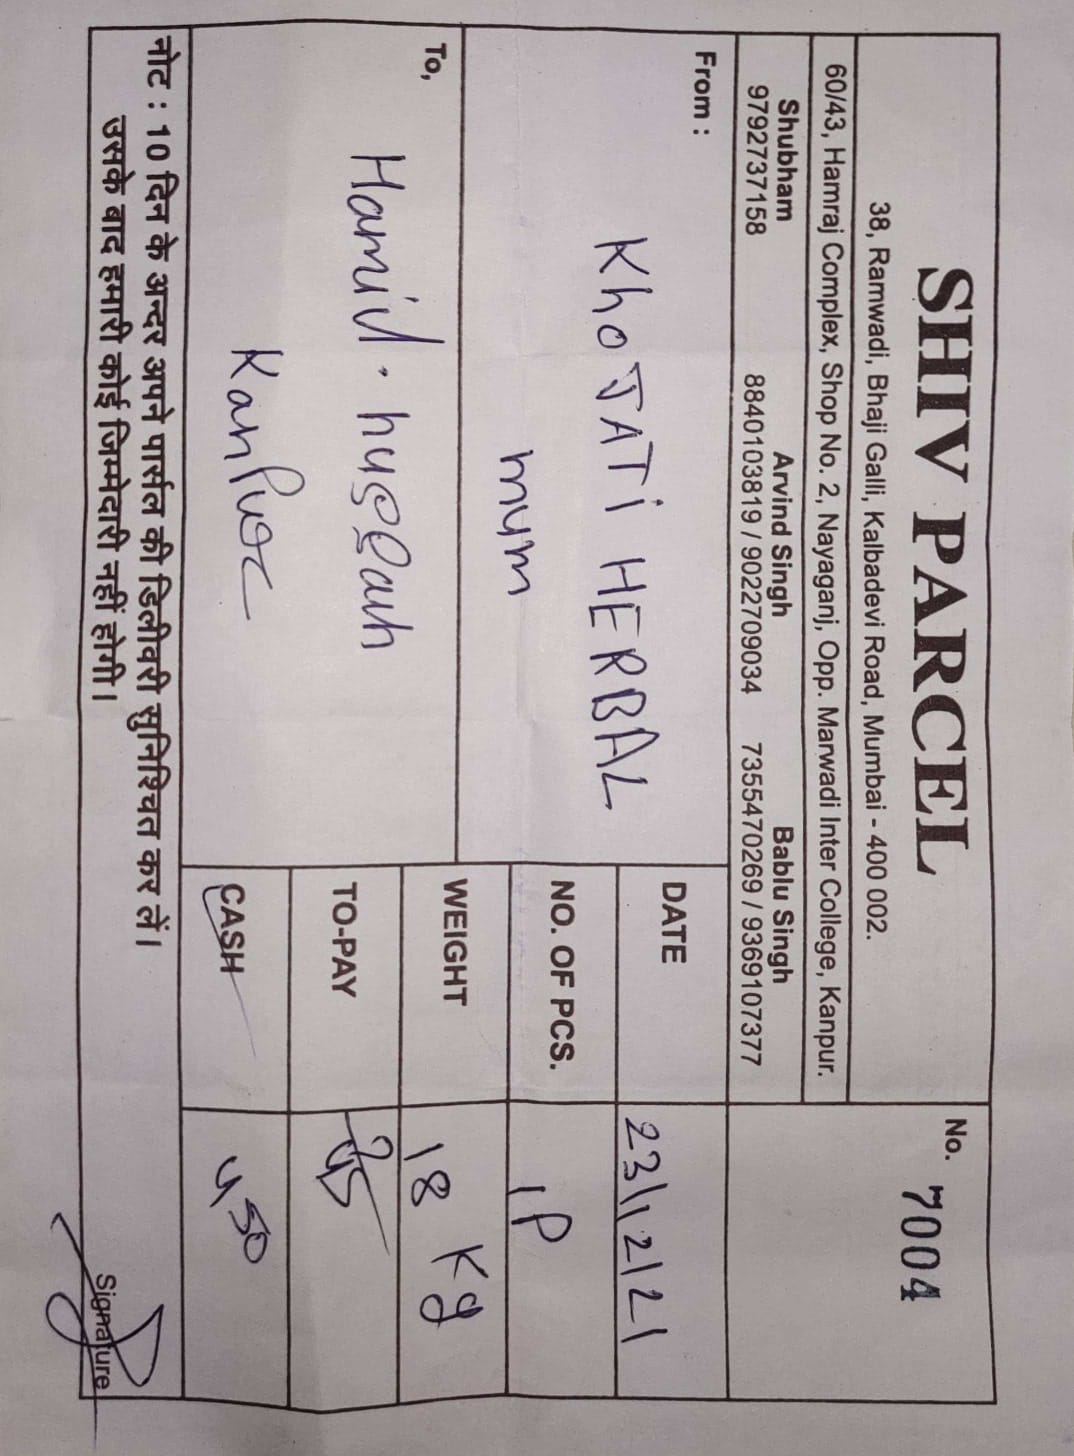 SHIV PARCEL
No. 7004
38, Ramwadi, Bhaji Galli, Kalbadevi Road, Mumbai - 400 002.
60/43, Hamraj Complex, Shop No. 2, Nayaganj, Opp. Marwadi Inter College, Kanpur.
Shubham Arvind Singh Bablu Singh
9792737158 8840103819 / 9022709034 7355470269 / 9369107377
From :
KhoJATi HERBAL
mum
DATE 23/12/21
NO. OF PCS. 1P
To,
Hamid. hussain
Kanpur
WEIGHT 18 Kg
TO-PAY
CASH 450
नोट : 10 दिन के अन्दर अपने पार्सल की डिलीवरी सुनिश्चित कर लें।
उसके बाद हमारी कोई जिम्मेदारी नहीं होगी।
Signature